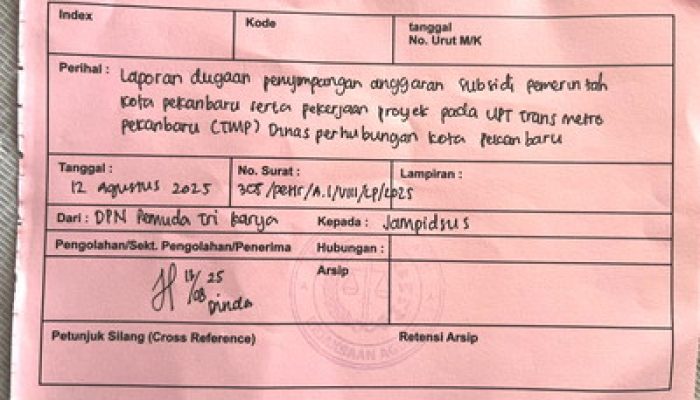 Index
Kode
tanggal
No. Urut M/K
Perihal : Laporan dugaan penyimpangan anggaran subsidi pemerintah
kota pekanbaru serta pekerjaan proyek pada UPT trans metro
pekanbaru (TMP) Dinas perhubungan kota pekanbaru
Tanggal :
12 Agustus 2025
No. Surat :
Lampiran :
Dari : DPN Pemuda Tri karya
Kepada : Jampidsus
Pengolahan/Sekt. Pengolahan/Penerima
Hubungan :
Arsip
13/08 25
Dinda
Petunjuk Silang (Cross Reference)
Retensi Arsip